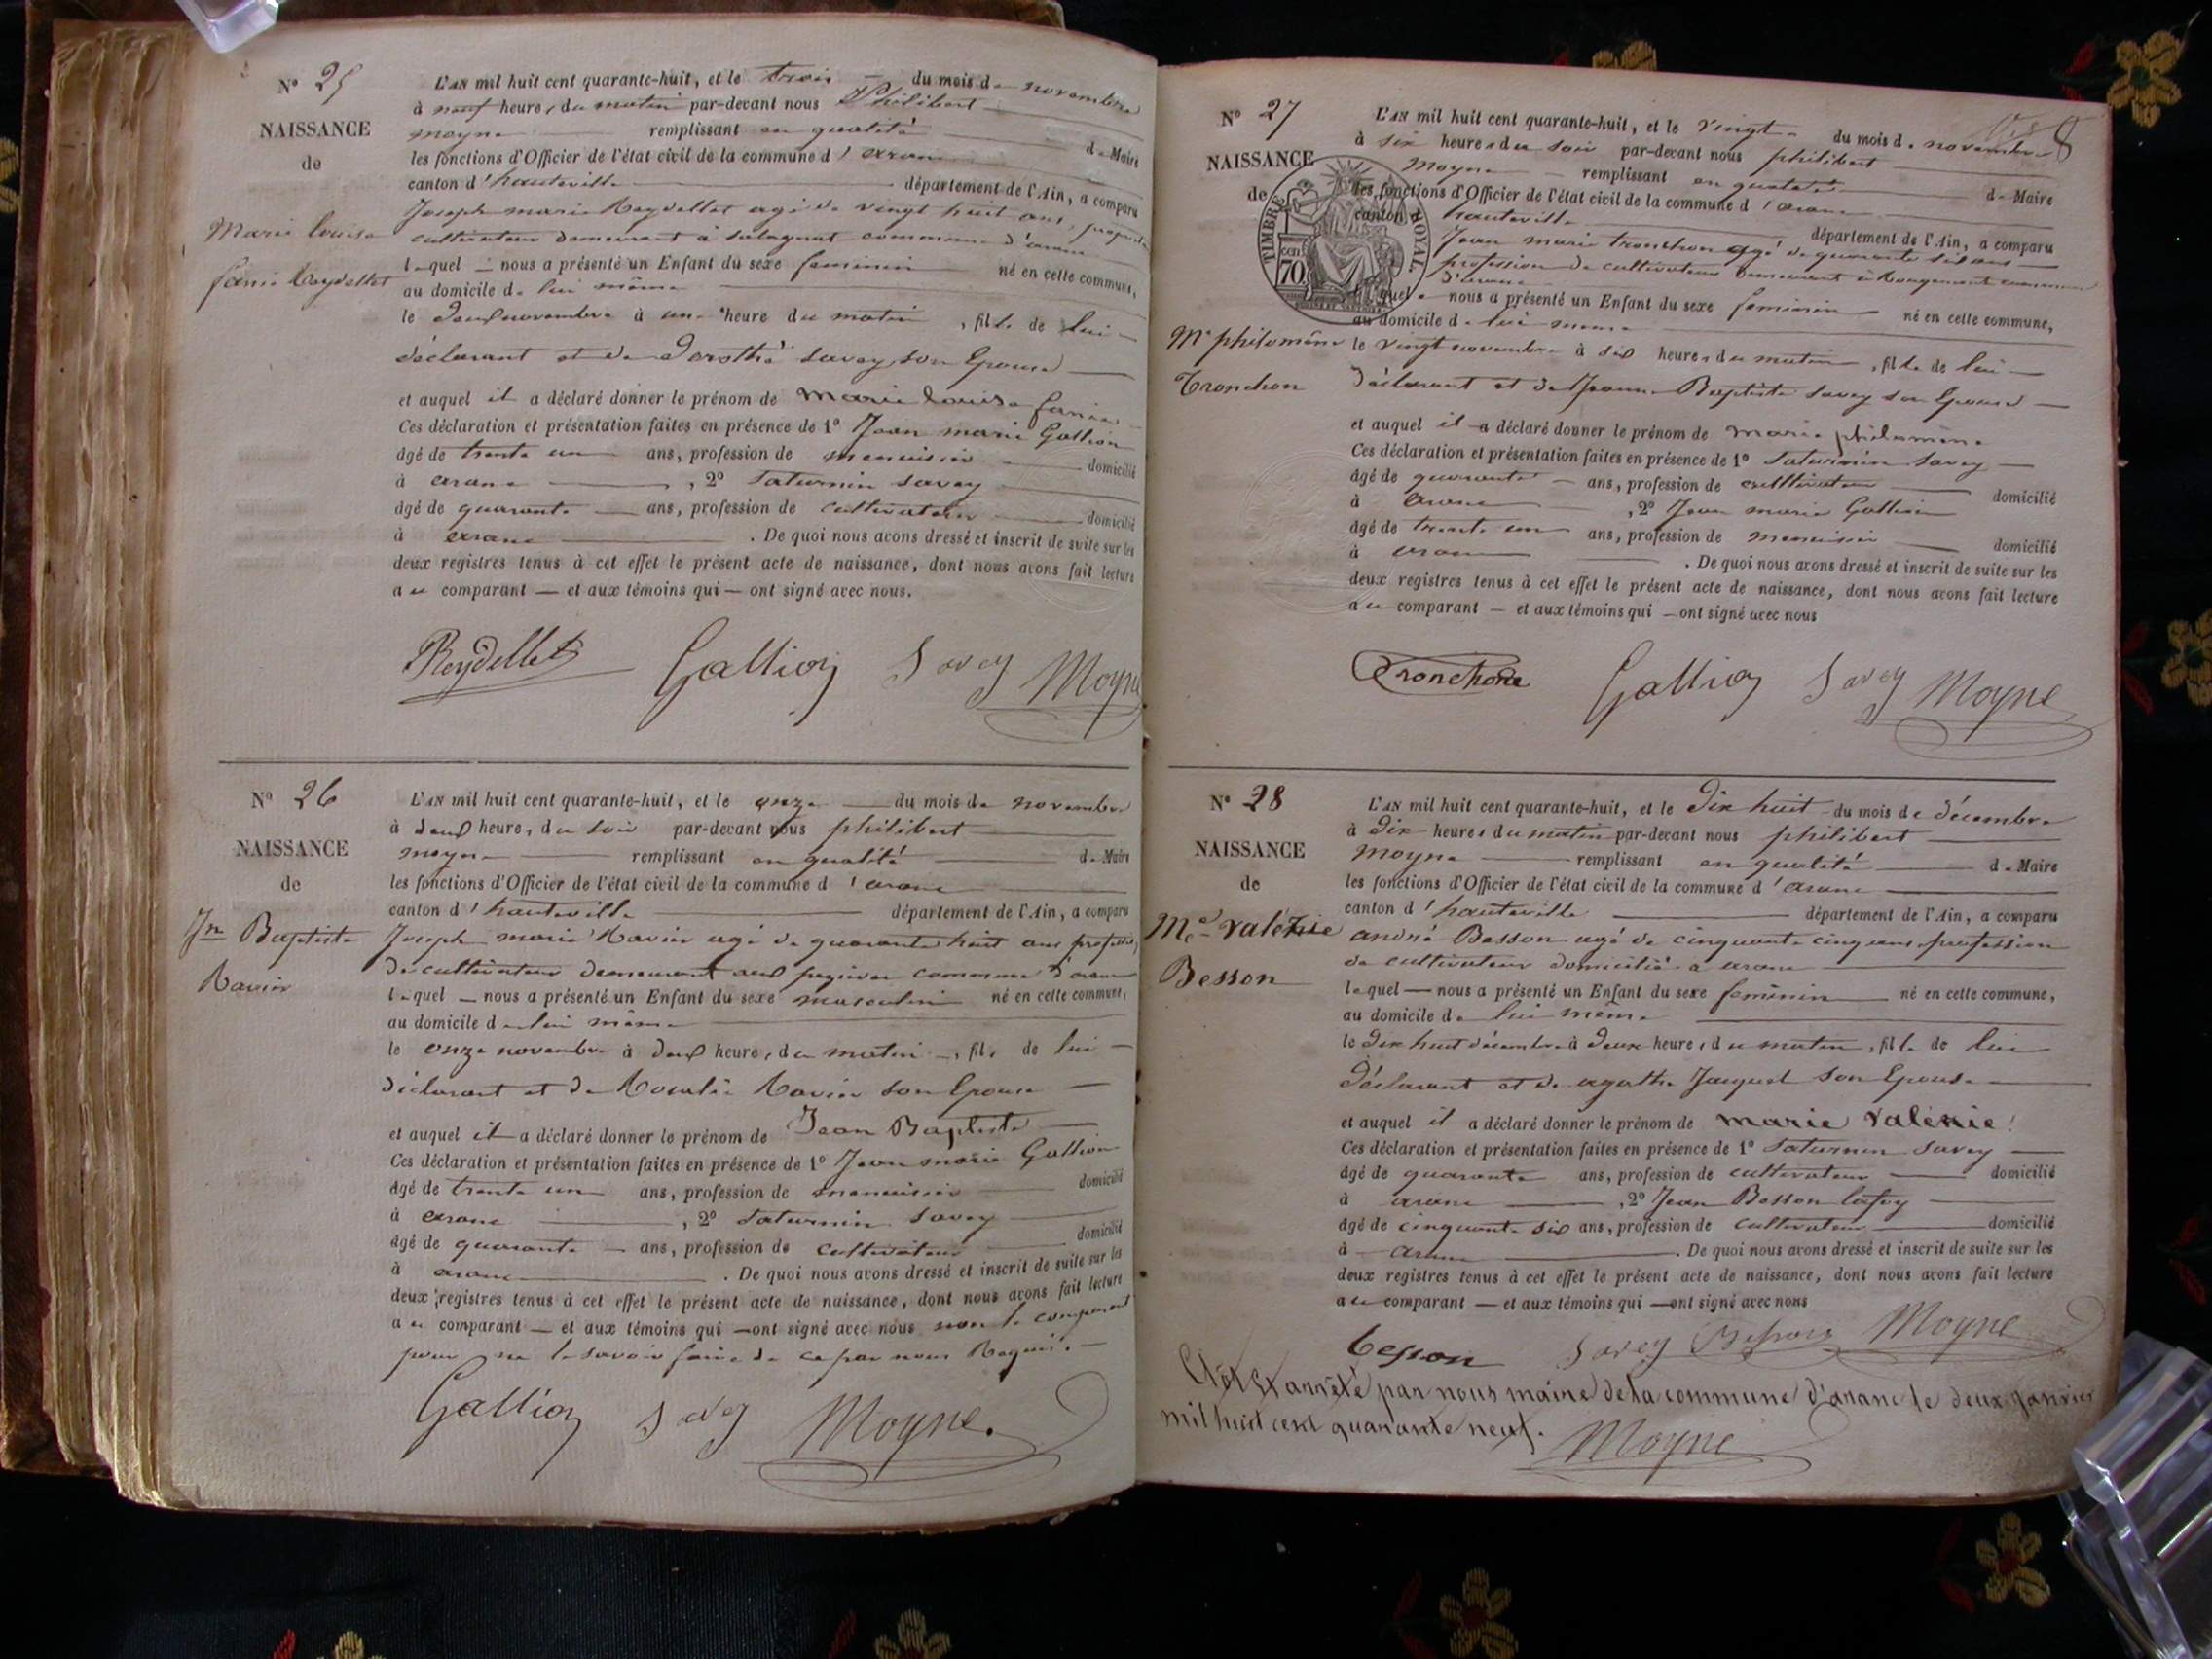 N° 25
NAISSANCE
de
Marie louise
fanie Reydellet
L'AN mil huit cent quarante-huit, et le trois — du mois de novembre
à neuf heures du matin par-devant nous Philibert
moyne remplissant en qualité de Maire
les fonctions d'Officier de l'état civil de la commune d'arane
canton d'hauteville département de l'Ain, a comparu
Joseph marie Reydellet agé de vingt huit ans,
cultivateur demeurant à salagnat commune d'arane
lequel — nous a présenté un Enfant du sexe feminin né en cette commune,
au domicile de lui même
le deux novembre à une heure du matin, fille de lui
déclarant et de Dorothé savey son Epouse
et auquel il a déclaré donner le prénom de marie louise fanie
Ces déclaration et présentation faites en présence de 1° Jean marie Gallion
âgé de trente un ans, profession de menuisier domicilié
à arane, 2° Saturnin savey
âgé de quarante ans, profession de cultivateur domicilié
à arane. De quoi nous avons dressé et inscrit de suite sur les
deux registres tenus à cet effet le présent acte de naissance, dont nous avons fait lecture
au comparant — et aux témoins qui — ont signé avec nous.
Reydellet Gallion Savey Moyne
N° 26
NAISSANCE
de
Jn Baptiste
Ravier
L'AN mil huit cent quarante-huit, et le onze du mois de novembre
à deux heures du soir par-devant nous philibert
moyne remplissant en qualité de Maire
les fonctions d'Officier de l'état civil de la commune d'arane
canton d'hauteville département de l'Ain, a comparu
Joseph marie Ravier agé de quarante huit ans profession
de cultivateur demeurant aux commune d'arane
lequel — nous a présenté un Enfant du sexe masculin né en cette commune,
au domicile de lui même
le onze novembre à deux heures du matin, fils de lui
déclarant et de Rosalie Ravier son Epouse
et auquel il a déclaré donner le prénom de Jean Baptiste
Ces déclaration et présentation faites en présence de 1° Jean marie Gallion
âgé de trente un ans, profession de menuisier domicilié
à arane, 2° Saturnin savey
âgé de quarante ans, profession de cultivateur domicilié
à arane. De quoi nous avons dressé et inscrit de suite sur les
deux registres tenus à cet effet le présent acte de naissance, dont nous avons fait lecture
au comparant — et aux témoins qui — ont signé avec nous non le comparant
pour ne le savoir faire de ce par nous Requis
Gallion Savey Moyne.
N° 27
NAISSANCE
de
TIMBRE ROYAL
70
Me philomène
Tronchon
L'AN mil huit cent quarante-huit, et le vingt du mois de novembre
à six heures du soir par-devant nous philibert
Moyne remplissant en qualité de Maire
les fonctions d'Officier de l'état civil de la commune d'arane
canton d'hauteville département de l'Ain, a comparu
Jean marie tronchon agé de quarante six ans
profession de cultivateur demeurant à Rougemont commune
d'arane
lequel nous a présenté un Enfant du sexe feminin né en cette commune,
au domicile de lui même
le vingt novembre à six heures du matin, fille de lui
déclarant et de Jeanne Baptiste savey son Epouse
et auquel il a déclaré donner le prénom de marie philomène
Ces déclaration et présentation faites en présence de 1° Saturnin savey
âgé de quarante ans, profession de cultivateur domicilié
à arane, 2° Jean marie Gallion
âgé de trente un ans, profession de menuisier domicilié
à arane. De quoi nous avons dressé et inscrit de suite sur les
deux registres tenus à cet effet le présent acte de naissance, dont nous avons fait lecture
au comparant — et aux témoins qui — ont signé avec nous
Tronchon Gallion Savey Moyne
N° 28
NAISSANCE
de
Me valérie
Besson
L'AN mil huit cent quarante-huit, et le Dix huit du mois de décembre
à Dix heures du matin par-devant nous philibert
Moyne remplissant en qualité de Maire
les fonctions d'Officier de l'état civil de la commune d'arane
canton d'hauteville département de l'Ain, a comparu
andré Besson agé de cinquante cinq ans profession
de cultivateur domicilié à arane
lequel — nous a présenté un Enfant du sexe feminin né en cette commune,
au domicile de lui même
le dix huit décembre à deux heures du matin, fille de lui
déclarant et de agathe Jacquet son Epouse
et auquel il a déclaré donner le prénom de marie valérie
Ces déclaration et présentation faites en présence de 1° Saturnin savey
âgé de quarante ans, profession de cultivateur domicilié
à arane, 2° Jean Besson lafoy
âgé de cinquante six ans, profession de cultivateur domicilié
à arane. De quoi nous avons dressé et inscrit de suite sur les
deux registres tenus à cet effet le présent acte de naissance, dont nous avons fait lecture
au comparant — et aux témoins qui — ont signé avec nous
besson Savey Besson Moyne
Clos et arrêté par nous maire de la commune d'arane le deux janvier
mil huit cent quarante neuf.
Moyne